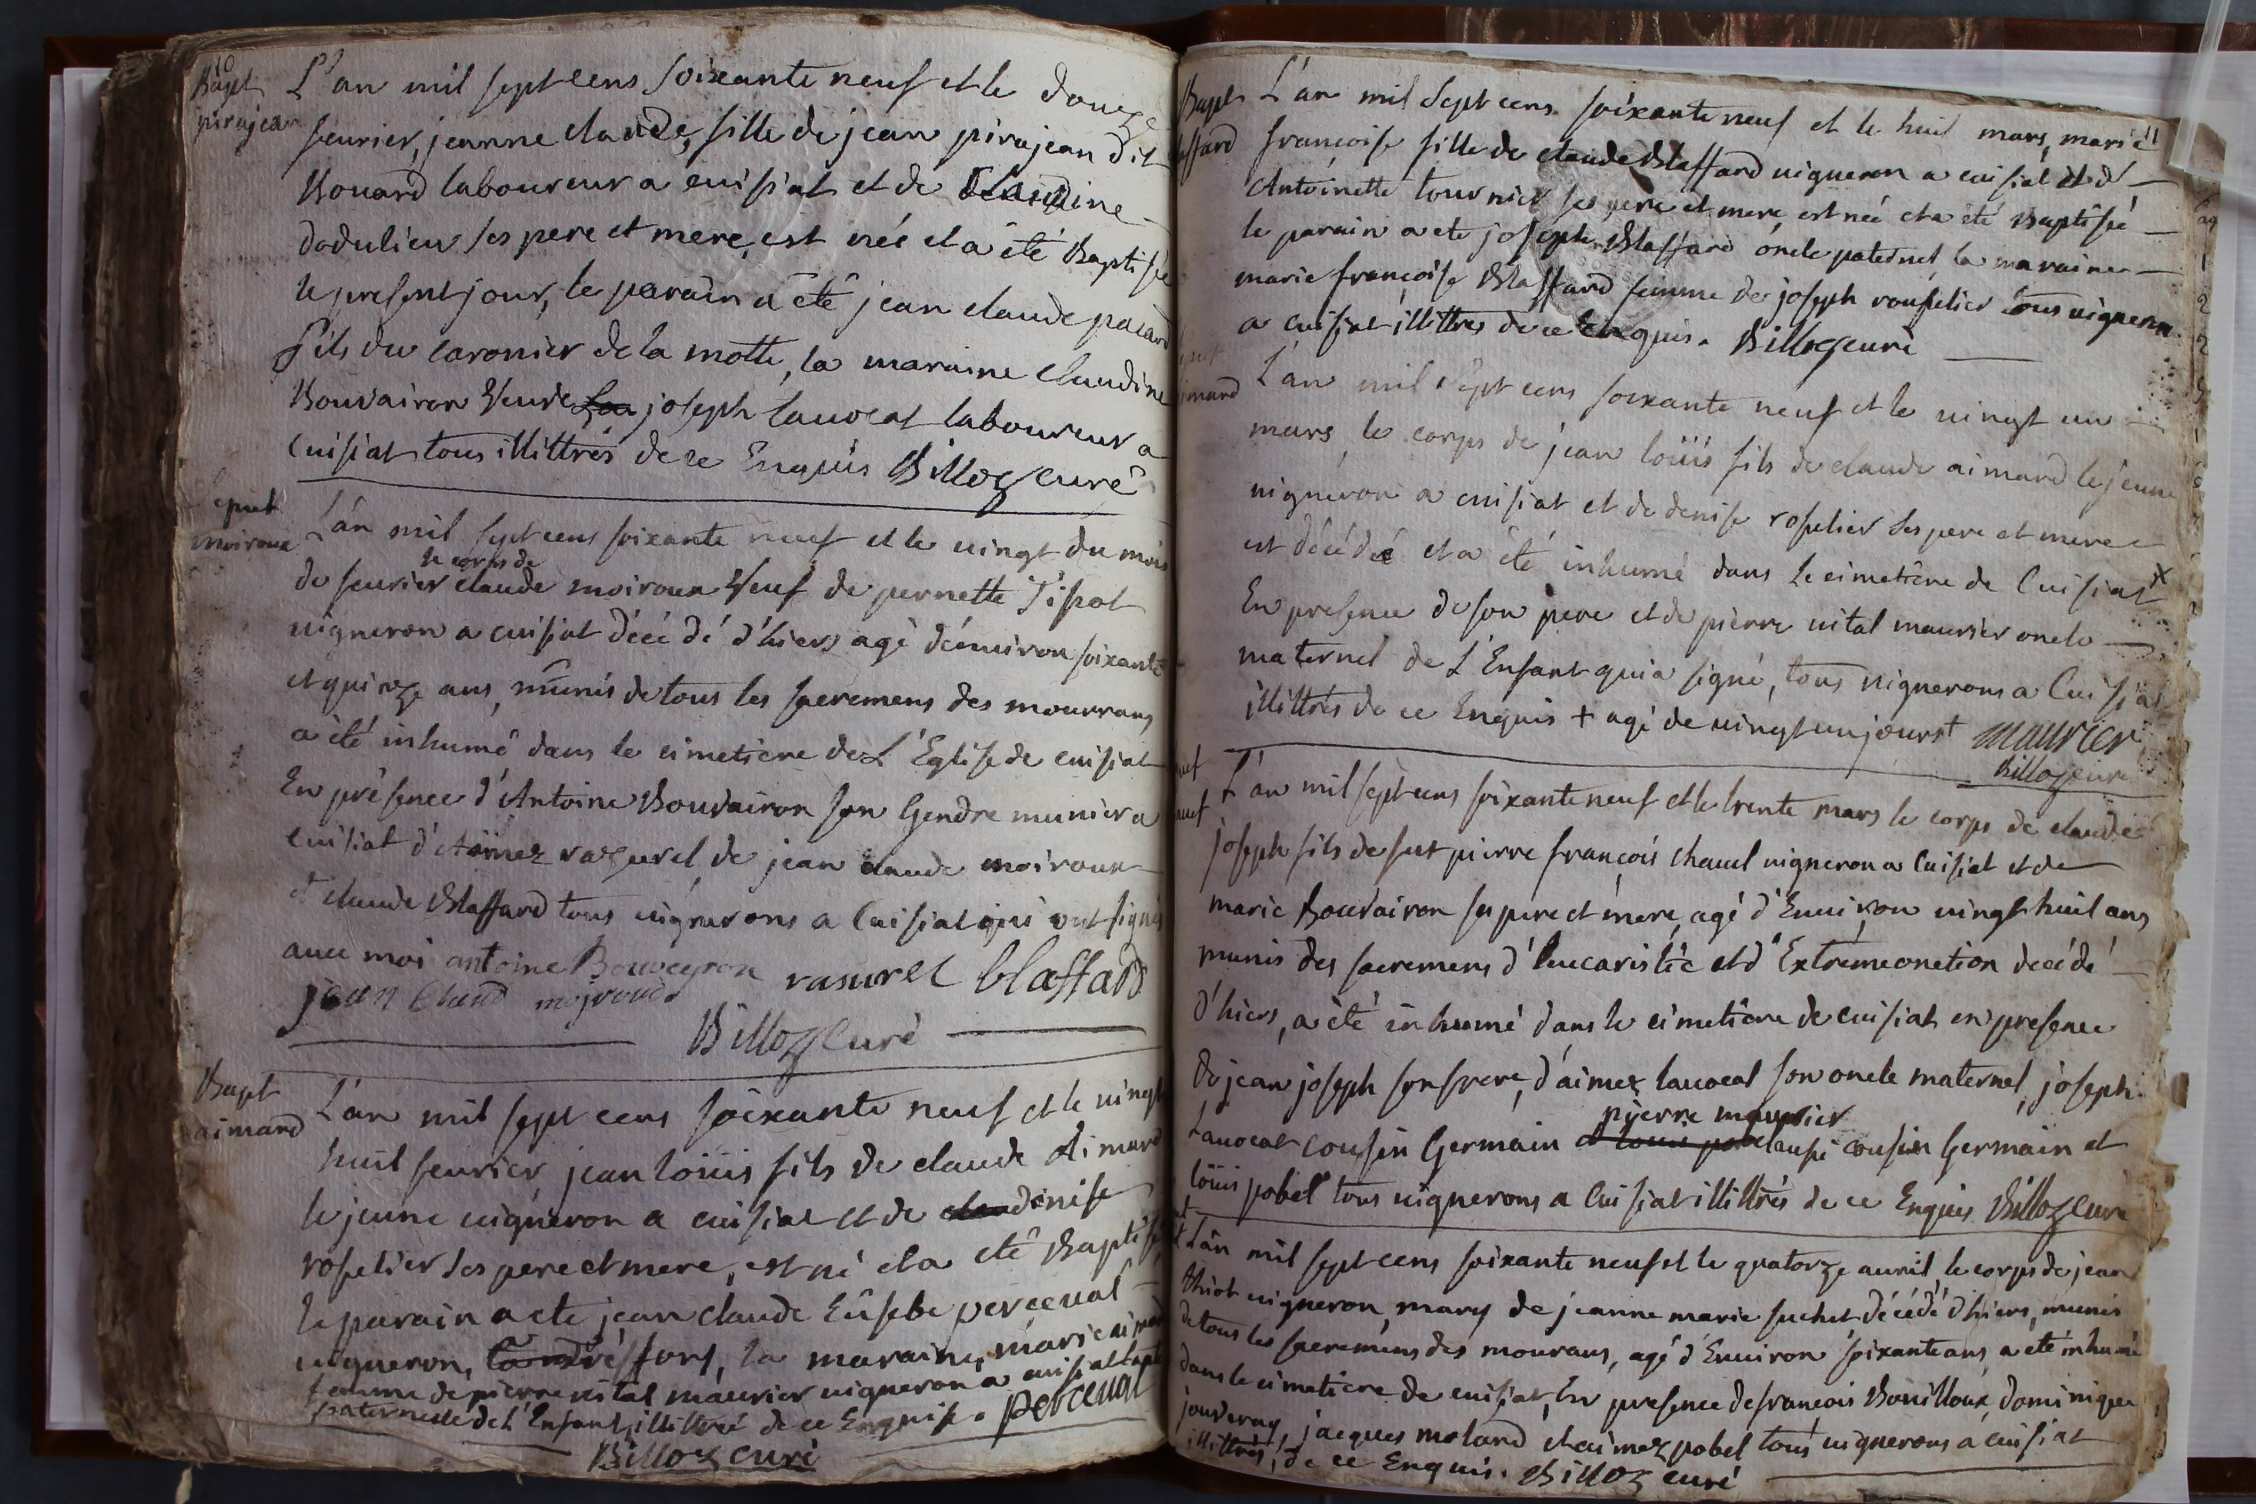 10
Bapt
pirajean
L'an mil sept cens soixante neuf et le douze
feurier, jeanne claude, fille de jean pirajean dit
Bonard laboureur a cuisiat et de Claudine
dodulieu ses pere et mere, est née et a été Baptisée
le present jour, le parain a été jean claude pacard
fils du caronier de la motte, la maraine claudine
Bouvairon Veuve joseph lauocat laboureur a
Cuisiat tous illittrés de ce Enquis Billoz curé
moiroux
L'an mil sept cens soixante neuf et le vingt du mois
le corps de
de feurier claude moiroux Veuf de pernette Tissot
uigneron a cuisiat décédé d'hiers agé d'énuiron soixante
et quinze ans, munis de tous les sacremens des mourrans
a été inhumé dans le cimetiere de L'Eglise de cuisiat
En présence d'Antoine Bouvairon son Gendre munier a
cuisiat d'Aimez razurel, de jean claude moiroux
et claude Blaffard tous uignerons a Cuisiat qui ont signés
auec moi antoine Bouveyron rasurel blaffard
jean Claud moiroud
Billoz Curé
Bapt
aimard
L'an mil sept cens soixante neuf et le uingt
huit feurier jean loüis fils de claude Aimard
le jeune uigneron a cuisiat et de denise
roselier ses pere et mere, est né et a été Baptisé
le parain a ete jean claude Eûsebe perceual
uigneron, la maraine, marie aimard
femme de pierre uital maurier uigneron a cuisiat tante
paternelle de L'Enfant, illittrée de ce Enquise. perceual
Billoz curé
11
Bapt
Blaffard
L'an mil Sept cens soixante neuf et le huit mars, marie
francoise fille de claude Blaffard uigneron a cuisiat et de
Antoinette tournier ses pere et mere, est née et a été Baptisée
le parain a ete joseph Blaffard oncle paternel, la maraine
marie françoise Blaffard femme de joseph rouselier tous uignerons
a cuisiat illittrés de ce Enquis. Billoz curé
aimard
L'an mil sept cens soixante neuf et le uingt un
mars, le corps de jean loüis fils de claude aimard le jeune
uigneron a cuisiat et de denise roselier ses pere et mere
est décédé et a été inhumé dans le cimetiere de Cuisiat +
En presence de son pere et de pierre uital maurier oncle
maternel de L'Enfant qui a signé, tous uignerons a Cuisiat
illittrés de ce Enquis + agé de uingt un jours + maurier
Billoz curé
L'an mil sept cens soixante neuf et le trente mars le corps de claude
joseph fils de feu pierre françois chauel uigneron a Cuisiat et de
marie Bouvairon ses pere et mere, agé d'Enuiron uingt huit ans
munis des sacremens d'Eucaristie et d'Extremeonction decédé
d'hiers, a été inhumé dans le cimetiere de cuisiat en presence
de jean joseph son frere, d'aimez lauocat son oncle maternel, joseph
pierre maurier
Lauocat cousin Germain aussi cousin Germain et
loüis pobel tous uignerons a Cuisiat illittrés de ce Enquis Billoz Curé
L'an mil sept cens soixante neuf et le quatorze auril, le corps de jean
thiot uigneron, mary de jeanne marie suchet décédé d'hiers, munis
de tous les sacremens des mourans, agé d'Enuiron soixante ans a été inhumé
dans le cimetiere de cuisiat, En presence de francois Bouilloux, dominique
jouveray, jacques moland et aimez pobel tous uignerons a cuisiat
illittrés, de ce Enquis. Billoz curé